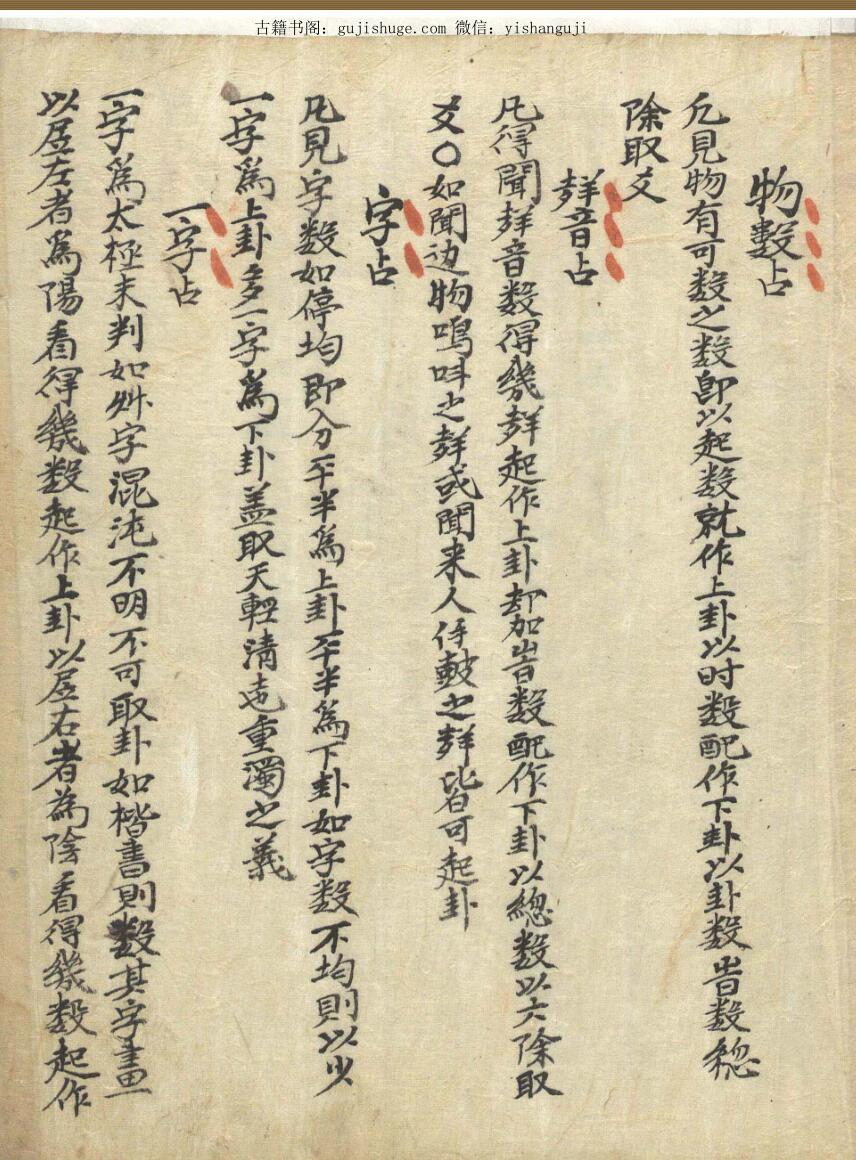 古籍书阁：gujishuge.com 微信：yishanguji
物數占
凡見物有可数之数即以起数就作上卦以时数配作下卦以卦数旹数総
除取爻
聲音占
凡得聞聲音数得幾聲起作上卦却加旹数配作下卦以總数以六除取
爻〇如聞边物鳴呌之聲或聞来人之聲皆可起卦
字占
凡見字数如停均即分平半為上卦平半為下卦如字数不均則以少
一字為上卦多一字為下卦盖取天輕清重濁之義
一字占
一字為太極未判如艸字混沌不明不可取卦如楷書則数其字畫一
以居左者為陽看得幾数起作上卦以居右者為陰看得幾数起作